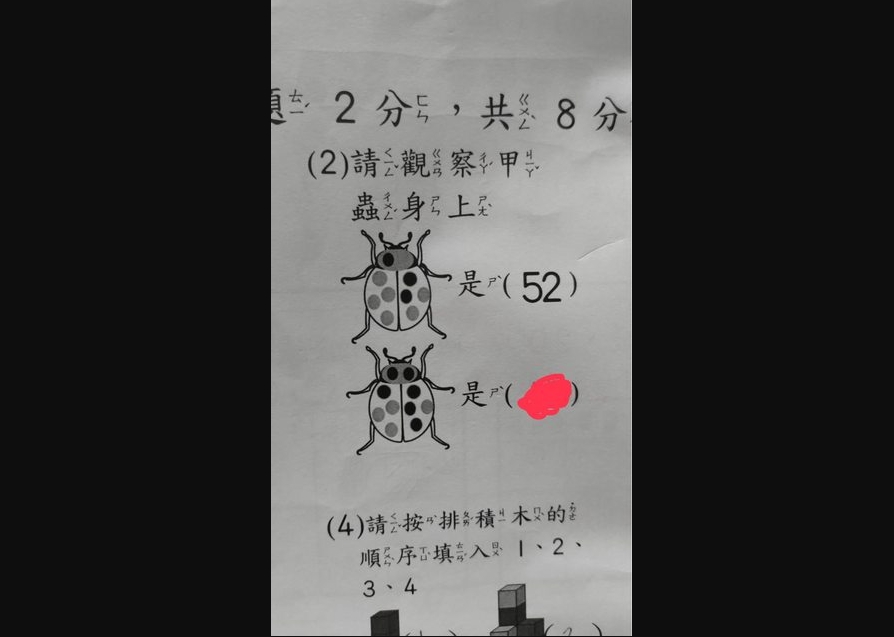 題ㄊㄧˊ 2 分ㄈㄣ，共ㄍㄨㄥˋ 8 分
(2)請ㄑㄧㄥˇ觀ㄍㄨㄢ察ㄔㄚˊ甲ㄐㄧㄚˇ
蟲ㄔㄨㄥˊ身ㄕㄣ上ㄕㄤˋ
是ㄕˋ( 52 )
是ㄕˋ( )
(4)請ㄑㄧㄥˇ按ㄢˋ排ㄆㄞˊ積ㄐㄧ木ㄇㄨˋ的˙ㄉㄜ
順ㄕㄨㄣˋ序ㄒㄩˋ填ㄊㄧㄢˊ入ㄖㄨˋ 1、2、
3、4